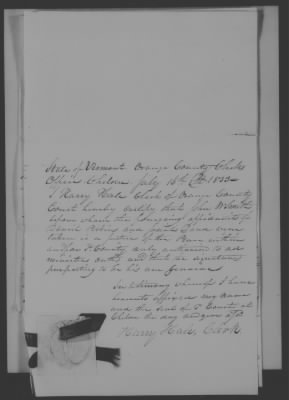 State of Vermont Orange County Clerks
Office Chelsea July 16th 1832
I Harry Hale Clerk of Orange County
Court hereby certify that John W Smith
before whom the foregoing affidavits of
Daniel and
taken is a Justice of the Peace within
and for Sd. County duly authorised to ad
minister oaths and that the signature
purporting to be his are genuine
In testimony whereof I have
hereunto affixed my name
and the seal of Sd County at
Chelsea the day and year afsd
Harry Hale, Clerk